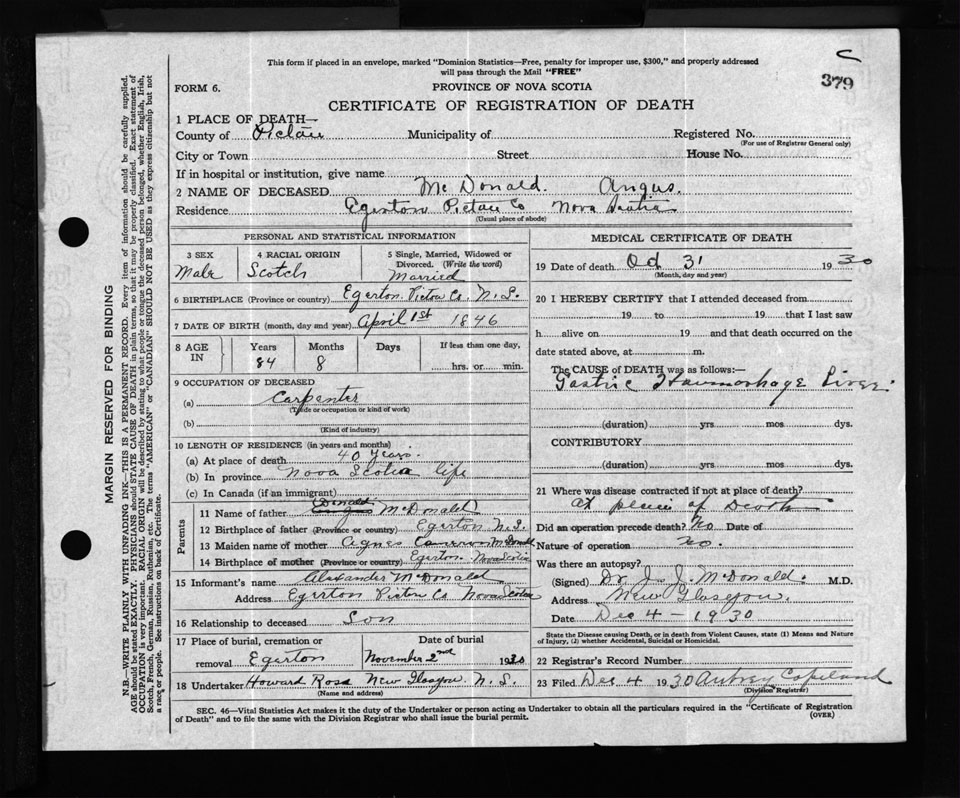 C
379
This form if placed in an envelope, marked "Dominion Statistics—Free, penalty for improper use, $300," and properly addressed
will pass through the Mail "FREE"
FORM 6. PROVINCE OF NOVA SCOTIA
CERTIFICATE OF REGISTRATION OF DEATH
1 PLACE OF DEATH—
County of Pictou Municipality of Registered No.
(For use of Registrar General only)
City or Town Street House No.
If in hospital or institution, give name
2 NAME OF DECEASED McDonald. Angus.
Residence Egerton Pictou Co Nova Scotia
(Usual place of abode)
PERSONAL AND STATISTICAL INFORMATION
3 SEX 4 RACIAL ORIGIN 5 Single, Married, Widowed or
Divorced. (Write the word)
Male Scotch Married
6 BIRTHPLACE (Province or country) Egerton. Pictou Co. N.S.
7 DATE OF BIRTH (month, day and year) April 1st 1846
8 AGE IN Years Months Days If less than one day,
84 8 hrs. or min.
9 OCCUPATION OF DECEASED
(a) Carpenter
(Trade or occupation or kind of work)
(b)
(Kind of industry)
10 LENGTH OF RESIDENCE (in years and months)
(a) At place of death 40 years.
(b) In province Nova Scotia life
(c) In Canada (if an immigrant)
Parents
Donald
11 Name of father Angus McDonald
12 Birthplace of father (Province or country) Egerton N.S.
13 Maiden name of mother Agnes Cameron McDonald
14 Birthplace of mother (Province or country) Egerton. Nova Scotia
15 Informant's name Alexander McDonald
Address Egerton Pictou Co Nova Scotia
16 Relationship to deceased Son
17 Place of burial, cremation or Date of burial
removal Egerton November 2nd 1930
18 Undertaker Howard Ross New Glasgow N.S.
(Name and address)
MEDICAL CERTIFICATE OF DEATH
19 Date of death Oct 31 1930
(Month, day and year)
20 I HEREBY CERTIFY that I attended deceased from
19 to 19 that I last saw
h alive on 19 and that death occurred on the
date stated above, at m.
The CAUSE of DEATH was as follows:—
Gastric Haemorhage
(duration) yrs mos dys.
CONTRIBUTORY
(duration) yrs. mos dys.
21 Where was disease contracted if not at place of death?
At place of Death
Did an operation precede death? No Date of
Nature of operation no.
Was there an autopsy?
(Signed) Dr J. J. McDonald. M.D.
Address New Glasgow.
Date Dec 4 - 1930
State the Disease causing Death, or in death from Violent Causes, state (1) Means and Nature
of Injury, (2) whether Accidental, Suicidal or Homicidal.
22 Registrar's Record Number
23 Filed Dec 4 1930 Aubrey Copeland
(Division Registrar)
SEC. 46—Vital Statistics Act makes it the duty of the Undertaker or person acting as Undertaker to obtain all the particulars required in the "Certificate of Registration
of Death" and to file the same with the Division Registrar who shall issue the burial permit. (OVER)
MARGIN RESERVED FOR BINDING
N.B.—WRITE PLAINLY WITH UNFADING INK—THIS IS A PERMANENT RECORD. Every item of information should be carefully supplied.
AGE should be stated EXACTLY. PHYSICIANS should STATE CAUSE OF DEATH in plain terms, so that it may be properly classified. Exact statement of
OCCUPATION is very important. RACIAL ORIGIN will be described by stating to what people or tongue the deceased person belonged, whether English, Irish,
Scotch, French, German, Russian, Ruthenian, etc. The terms "AMERICAN" or "CANADIAN" SHOULD NOT BE USED as they express citizenship but not
a race or people. See instructions on back of Certificate.